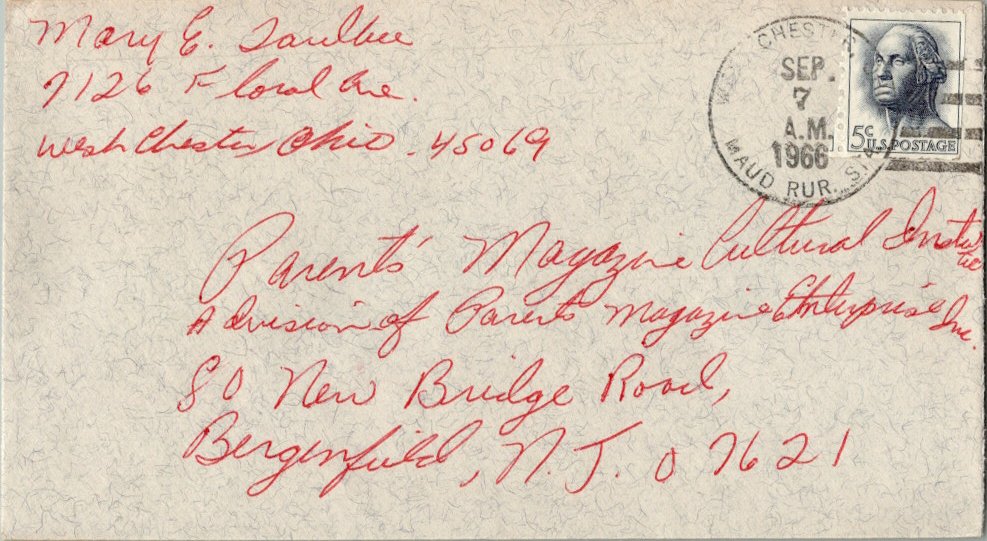 Mary E. Saulbee
7126 Floral Ave.
West Chester, Ohio. 45069
WEST CHESTER
SEP.
7
A.M.
1966
MAUD RUR. STA.
5¢
U.S. POSTAGE
Parents' Magazine Cultural Institute
A division of Parents Magazine Enterprise Inc.
80 New Bridge Road,
Bergenfield, N.J. 07621